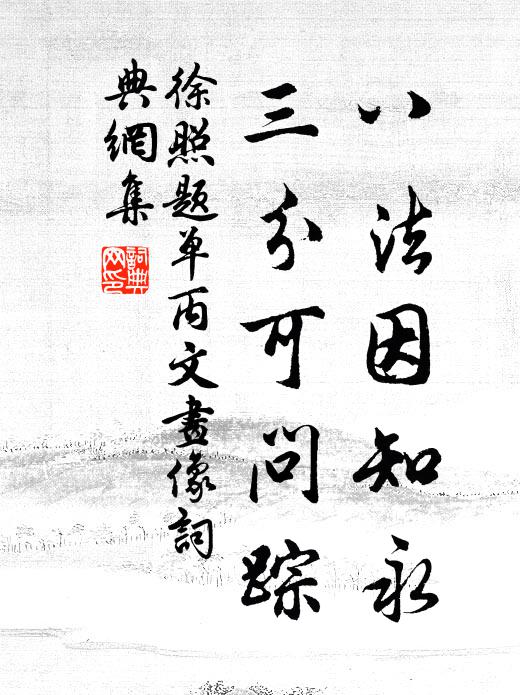 八法因知永
三分可问踪
徐照题单丙文畫像詞
典網集
詞典
网印